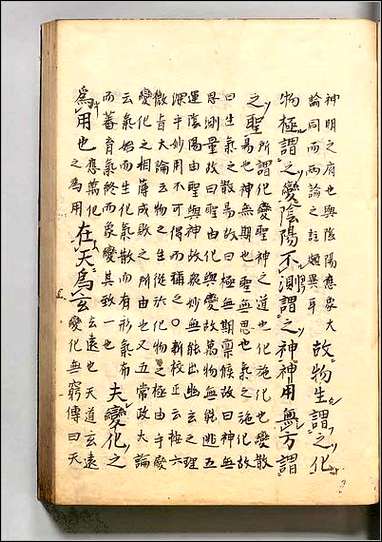 神明之府也與陰陽應象大
論同而兩論之註頗異耳
故物生謂之化
物極謂之變陰陽不測謂之神神用無方謂
之聖
所謂化變聖神之道也化施化也變散
易也神無期也聖無思也氣之施化故
曰生氣之散易故曰極無期稟候故曰神無
思測量故曰聖由化與變故萬物無能逃五
運陰陽由聖與神故衆妙無能出幽玄之理
深乎妙用不可得而稱之○新校正云按六
微旨大論云物之生從於化物之極由乎變
變化之相薄成敗之所由也又五常政大論
云氣始而生化氣散而有形氣布
而蕃育氣終而象變其致一也
夫變化之
為用也
應萬化
之為用
在天為玄
玄遠也天道玄遠
變化無窮傳曰天